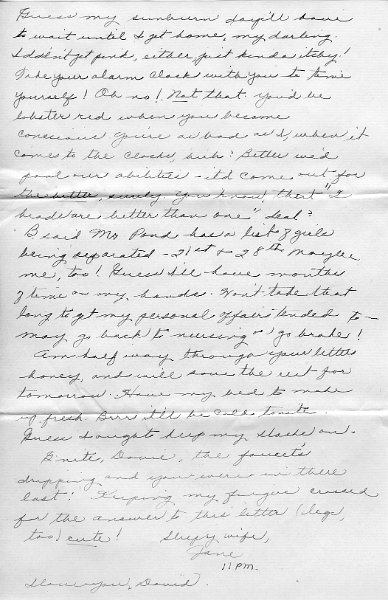 Guess my sunburn Jayill have
to wait until I get home, my darling.
I didn't get pink, either just kinda itchy!
Take your alarm clock with you to time
yourself! Oh no! Not that. you'd be
lobster red when you become
conscious you're as bad as I, when it
comes to the clocks, huh? Better we'd
pool our abilities - it'd come out for
the better, surely you know that "2
heads are better than one" deal?
B said Mr Pond has a list of girls
being separated - 21st & 28th. Maybe
me, too! Guess I'll have months
of time on my hands. Won't take that
long to get my personal affairs tended to -
may go back to nursing or "go broke!
Am half way through your letter
honey, and will save the rest for
tomorrow. Have my bed to make
up fresh. Brrr it'll be cold tonite.
Guess I ought to keep my slacks on.
G'nite, Davie, the faucet's
dripping and you were in there
last! Keeping my fingers crossed
for the answer to this letter (legs,
too) cute! Sleepy wife,
Jane
11 P.M.
I love you, David.